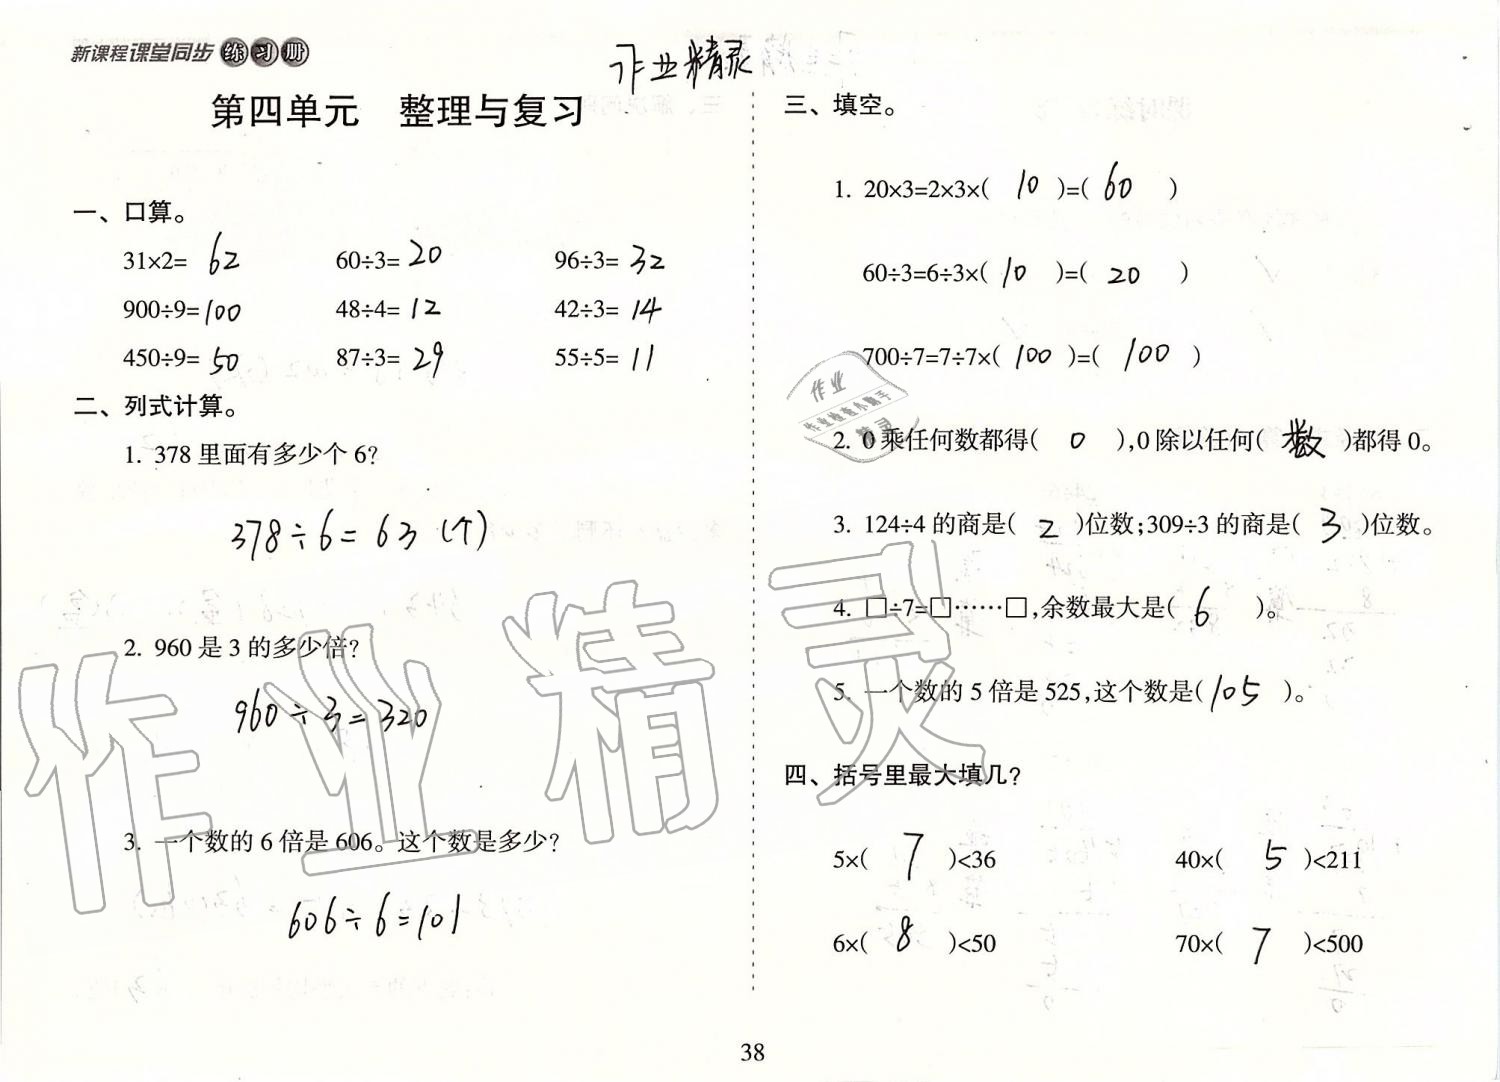 新课程课堂同步练习册
作业精灵
第四单元 整理与复习
一、口算。
31×2= 62 60÷3= 20 96÷3= 32
900÷9= 100 48÷4= 12 42÷3= 14
450÷9= 50 87÷3= 29 55÷5= 11
二、列式计算。
1. 378里面有多少个6?
378÷6=63(个)
2. 960是3的多少倍?
960÷3=320
3. 一个数的6倍是606。这个数是多少?
606÷6=101
三、填空。
1. 20×3=2×3×( 10 )=( 60 )
60÷3=6÷3×( 10 )=( 20 )
700÷7=7÷7×( 100 )=( 100 )
作业
作业检查小助手
精灵
2. 0乘任何数都得( 0 ),0除以任何( 数 )都得0。
3. 124÷4的商是( 2 )位数;309÷3的商是( 3 )位数。
4. □÷7=□……□,余数最大是( 6 )。
5. 一个数的5倍是525,这个数是( 105 )。
四、括号里最大填几?
5×( 7 )<36 40×( 5 )<211
6×( 8 )<50 70×( 7 )<500
作业精灵
38